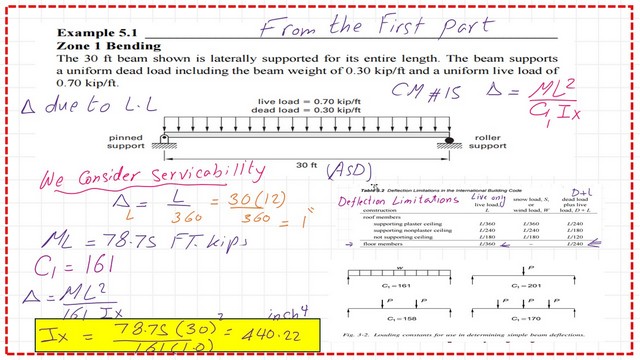 Example 5.1
From the First part
Zone 1 Bending
The 30 ft beam shown is laterally supported for its entire length. The beam supports
a uniform dead load including the beam weight of 0.30 kip/ft and a uniform live load of
0.70 kip/ft.
CM #15 Δ = ML²
C₁ Ix
Δ due to L.L
live load = 0.70 kip/ft
dead load = 0.30 kip/ft
pinned support
roller support
30 ft
We Consider Servicability
(ASD)
Δ = L = 30(12) = 1"
L 360 360
ML = 78.75 FT. kips
C₁ = 161
Δ = ML²
161 Ix
Ix = 78.75 (30)² = 440.22 inch⁴
161(1.0)
Table 3.2 Deflection Limitations in the International Building Code
Deflection Limitations Live only D+L
construction live load, L snow load, S, or wind load, W dead load plus live load, D + L
roof members
supporting plaster ceiling L/360 L/360 L/240
supporting nonplaster ceiling L/240 L/240 L/180
not supporting ceiling L/180 L/180 L/120
floor members L/360 – L/240
w
C₁ = 161
P
C₁ = 201
P P
C₁ = 158
P P
C₁ = 170
Fig. 3-2. Loading constants for use in determining simple beam deflections.